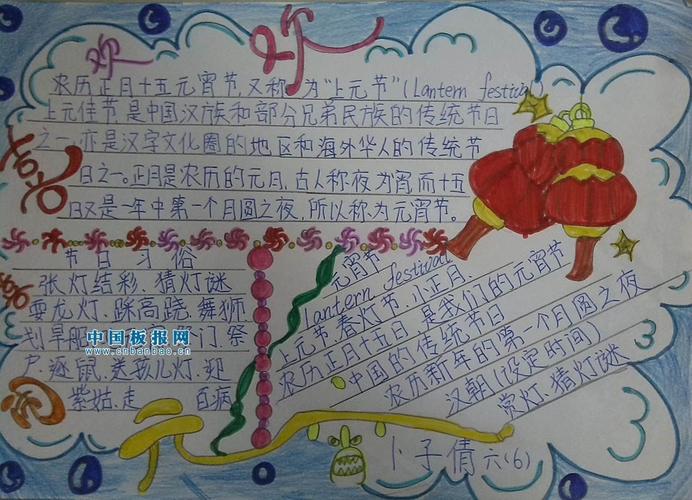 欢 欢
农历正月十五元宵节,又称为"上元节"(Lantern festival)
上元佳节是中国汉族和部分兄弟民族的传统节日
之一,亦是汉字文化圈的地区和海外华人的传统节
日之一。正月是农历的元月,古人称夜为宵,而十五
日又是一年中第一个月圆之夜,所以称为元宵节。
喜
节日习俗
张灯结彩、猜灯谜
耍龙灯、踩高跷、舞狮
划旱船 门、祭
户、逐鼠、送孩儿灯、迎
紫姑、走 百病
中国板报网
www.cnbanbao.cn
元宵节
lantern festival
上元节、春灯节、小正月、
农历正月十五日,是我们的元宵节
中国的传统节日
农历新年的第一个月圆之夜
汉朝(设定时间)
赏灯、猜灯谜
元
卜子倩 六(6)